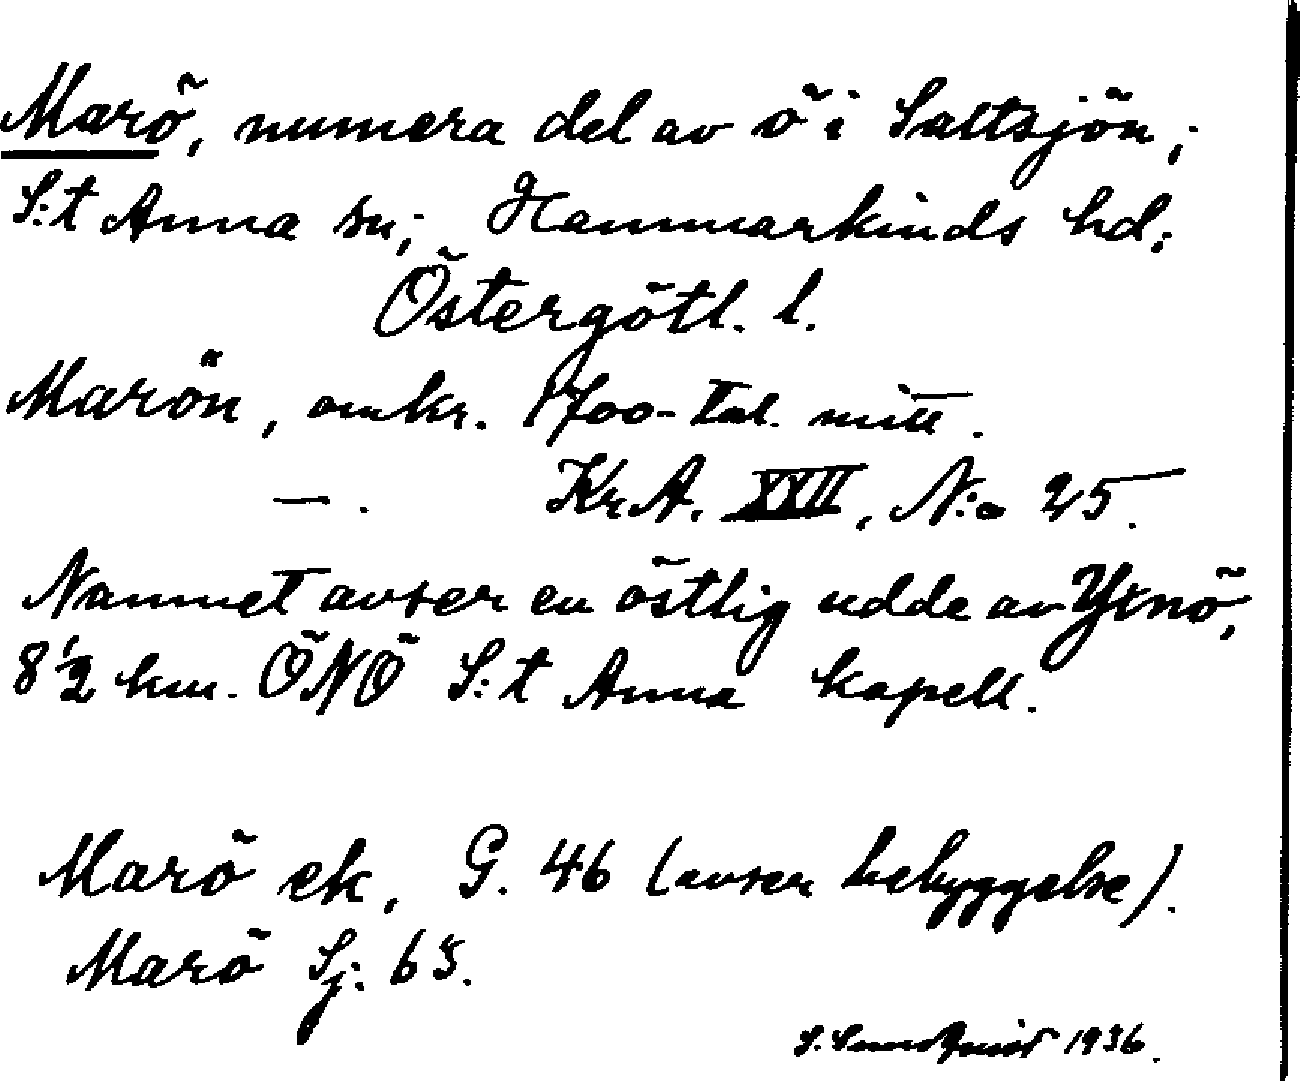 Marö, numera del av ö i Saltsjön,
S:t Anna sn, Hammarkinds hd,
Östergötl. l.
Marön, omkr. 1700-tal. mitt.
—. Kr.A. XXII, N:o 25.
Namnet avser en östlig udde av Yxnö,
8 1/2 km. ÖNÖ S:t Anna kapell.
Marö ek, G. 46 (avser bebyggelse).
Marö Sj: 65.
S. Sundquist 1936.